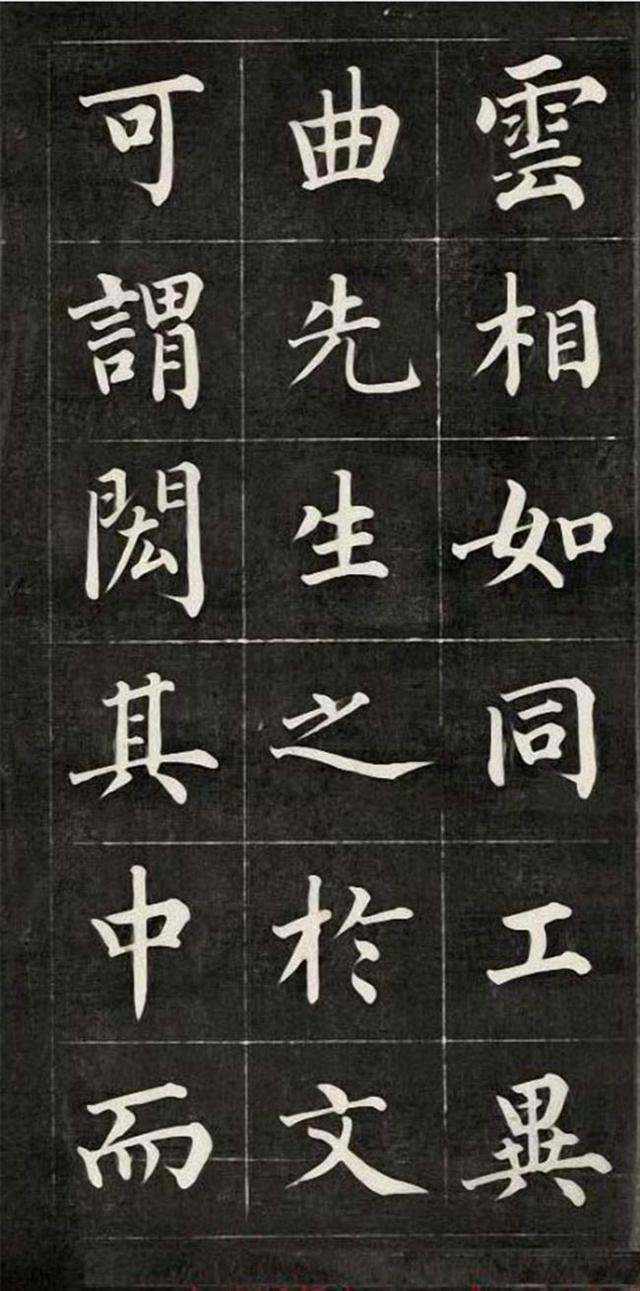 雲相如同工異
曲先生之於文
可謂閎其中而